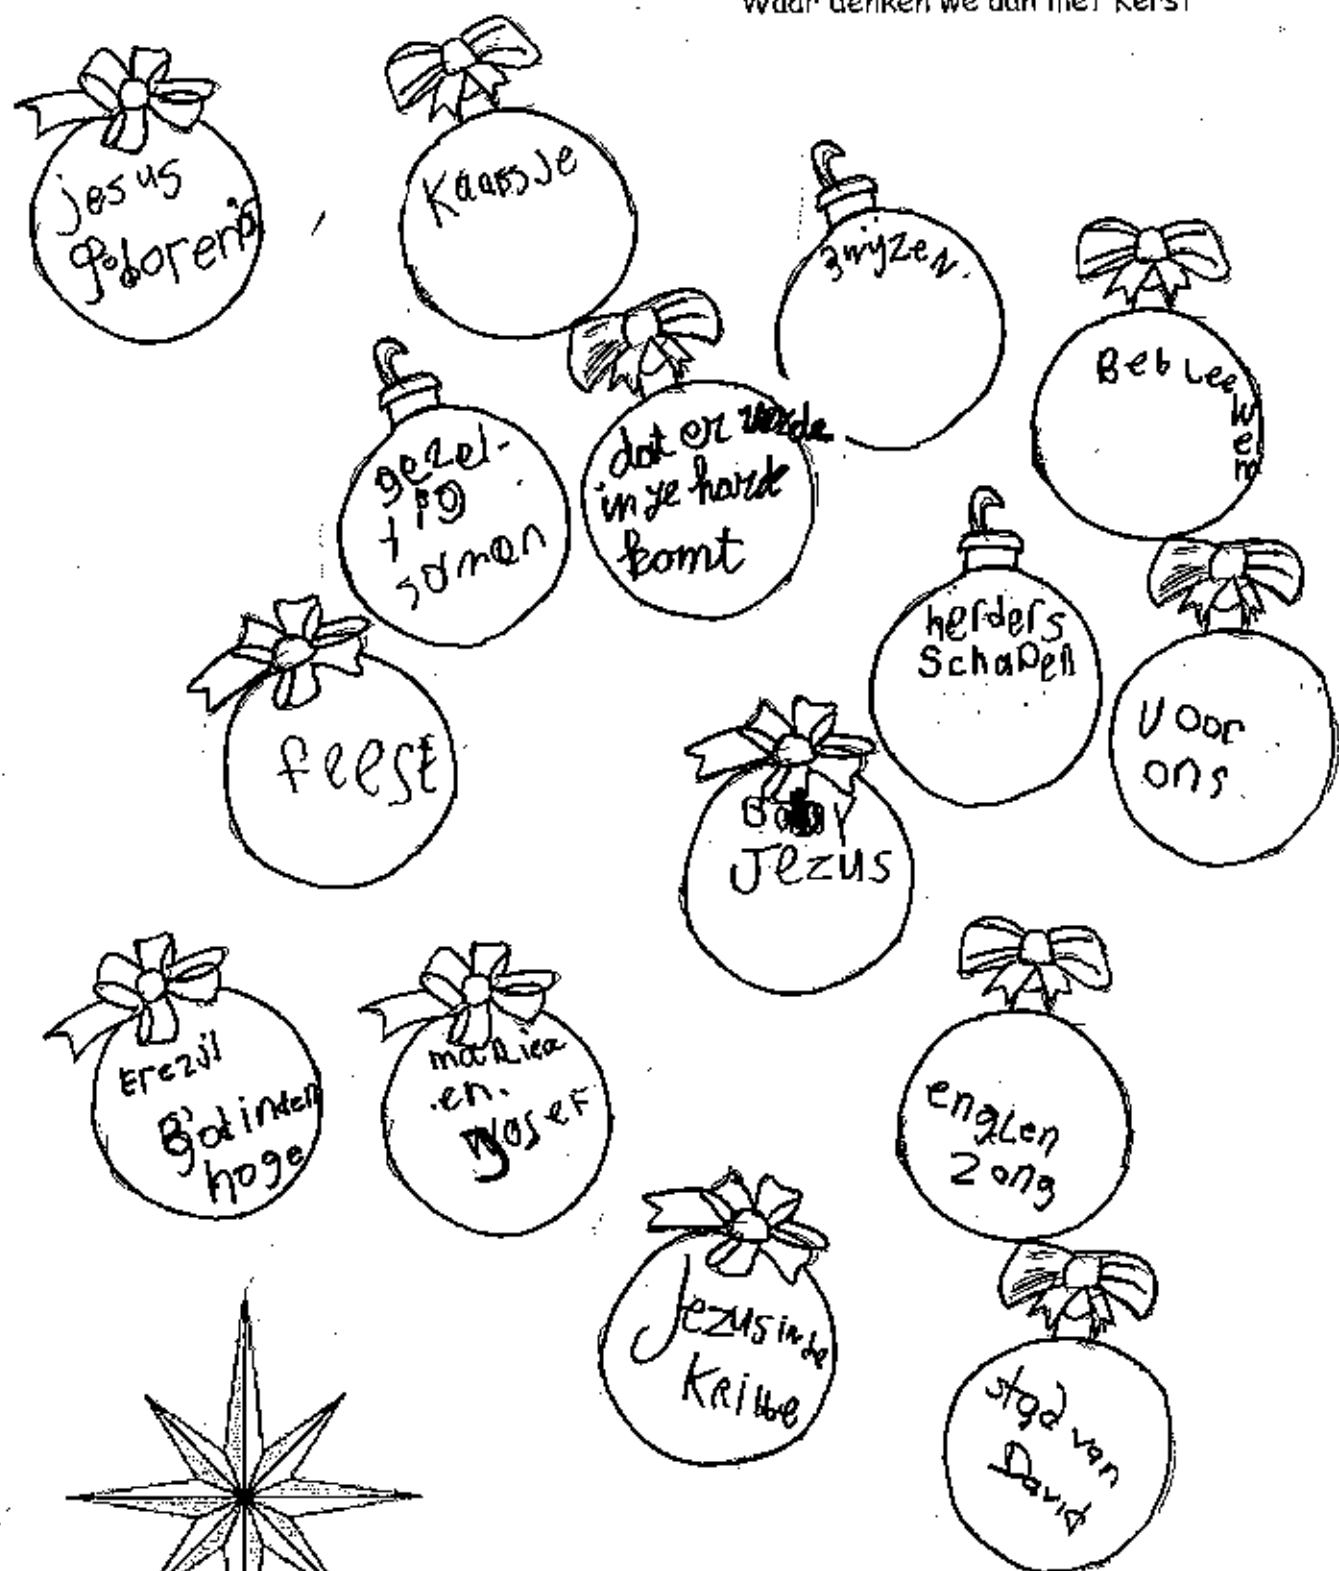 Waar denken we aan met Kerst
jesus
geboren is
Kaarsje
3 wijzen.
Bebleewem
gezel-
lig
saman
dat er verde
in je harde
komt
herders
schapen
voor
ons
feest
Baby
Jezus
Erezij
God in den
hoge
mariea
en.
Josef
englen
zong
Jezus in de
Kribbe
stad van
David